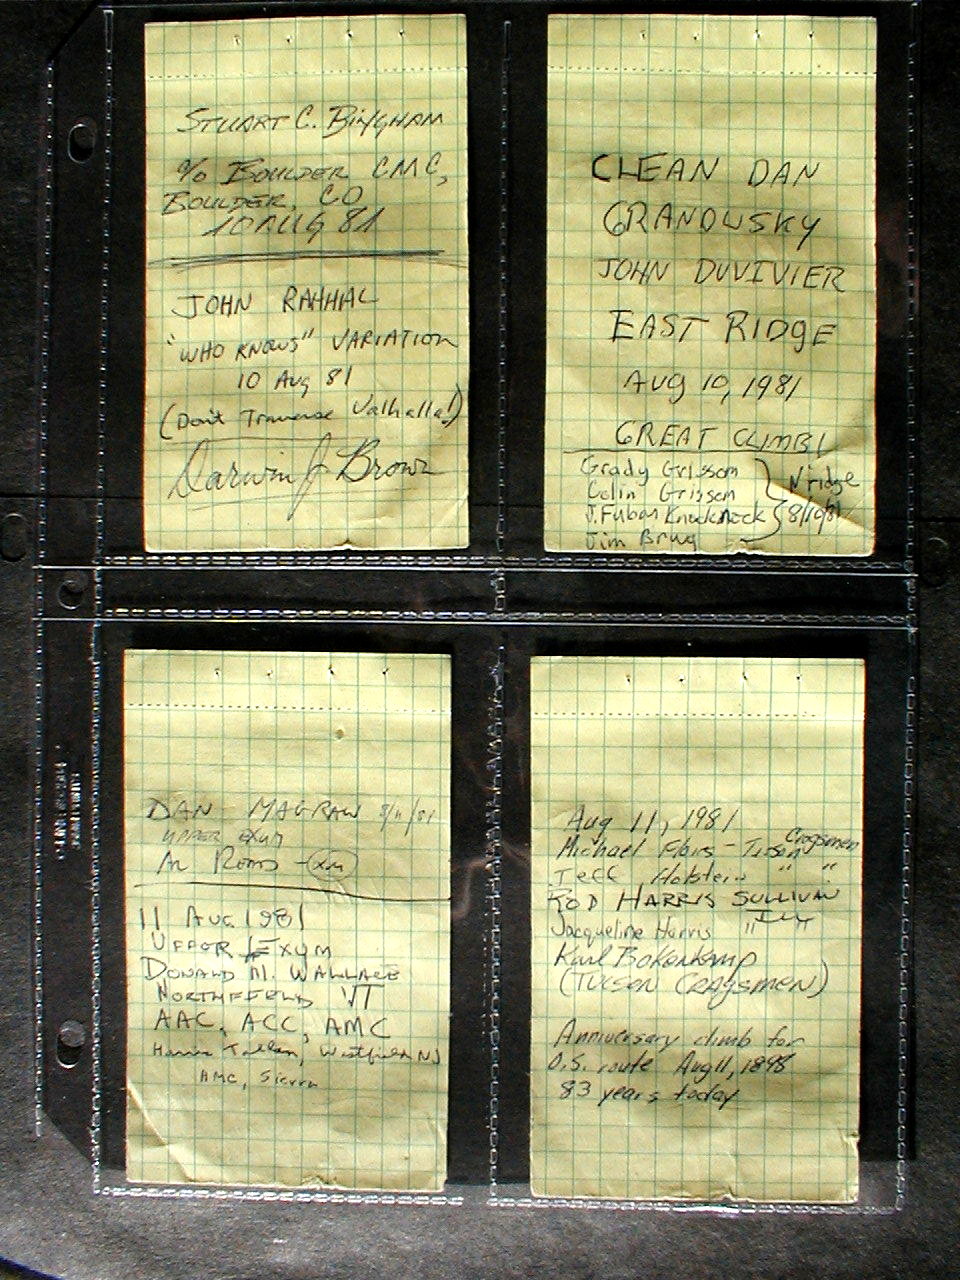 STUART C. BINGHAM
c/o BOULDER CMC,
BOULDER, CO
10 AUG 81
JOHN RAHHAL
"WHO KNOWS" VARIATION
10 Aug 81
(Don't Traverse Valhalla!)
Darwin J Brown
CLEAN DAN
GRANOWSKY
JOHN DUVIVIER
EAST RIDGE
AUG 10, 1981
GREAT CLIMB!
Grady Grissom
Colin Grissom
N ridge
J. Fubon Knickknock
8/10/81
Jim Bruy
DAN MAGRAW 8/11/81
UPPER EXUM
11 AUG 1981
UPPER EXUM
DONALD M. WALLACE
NORTHFIELD VT
AAC, ACC, AMC
Westfield NJ
AMC, Sierra
Aug 11, 1981
Michael Flors - Tucson Cragsmen
Jeff Holstein " "
ROD HARRIS SULLIVAN
ILL
Jacqueline Harris " "
Karl Bokenkamp
(TUCSON CRAGSMEN)
Anniversary climb for
O.S. route Aug 11, 1898
83 years today